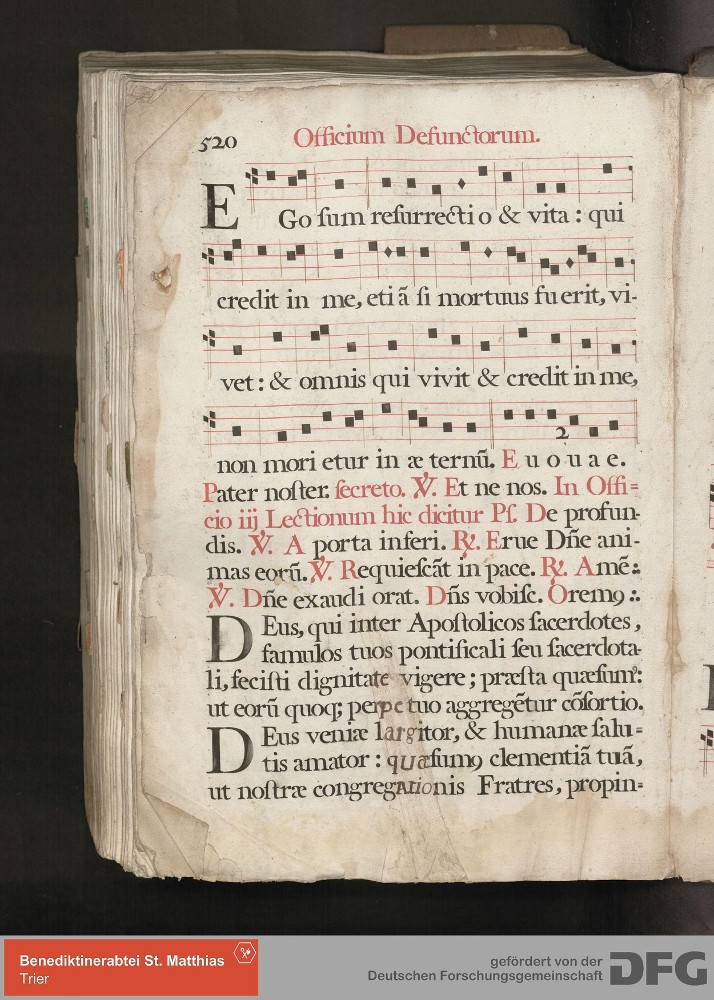 520 Officium Defunctorum.
EGo ſum reſurrectio & vita : qui
credit in me, etiã ſi mortuus fuerit, vi-
vet : & omnis qui vivit & credit in me,
non morietur in æternũ. E u o u a e.
2
Pater noſter. ſecreto. ℣. Et ne nos. In Offi=
cio iij Lectionum hic dicitur Pſ. De profun-
dis. ℣. A porta inferi. ℟. Erue Dñe ani-
mas eorũ. ℣. Requieſcãt in pace. ℟. Amẽ :.
℣. Dñe exaudi orat. Dñs vobiſc. Oremꝯ :.
DEus, qui inter Apoſtolicos ſacerdotes,
famulos tuos pontificali ſeu ſacerdota-
li, feciſti dignitate vigere ; præſta quæſum⁹:
ut eorũ quoq; perpetuo aggregẽtur cõſortio.
DEus veniæ largitor, & humanæ ſalu=
tis amator : quæſumꝯ clementiã tuã,
ut noſtræ congregationis Fratres, propin=
Benediktinerabtei St. Matthias
Trier
gefördert von der
Deutschen Forschungsgemeinschaft DFG